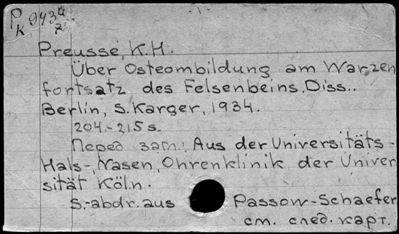 Preusse, K.H.
Über Osteombildung am Warzen
fortsatz des Felsenbeins. Diss..
Berlin, S. Karger, 1934.
204-215 s.
Перед заг.: Aus der Universitäts-
Hals-, Nasen, Ohrenklinik der Univer
sität Köln.
S.-abdr. aus Passow-Schaefer
см. след. карт.